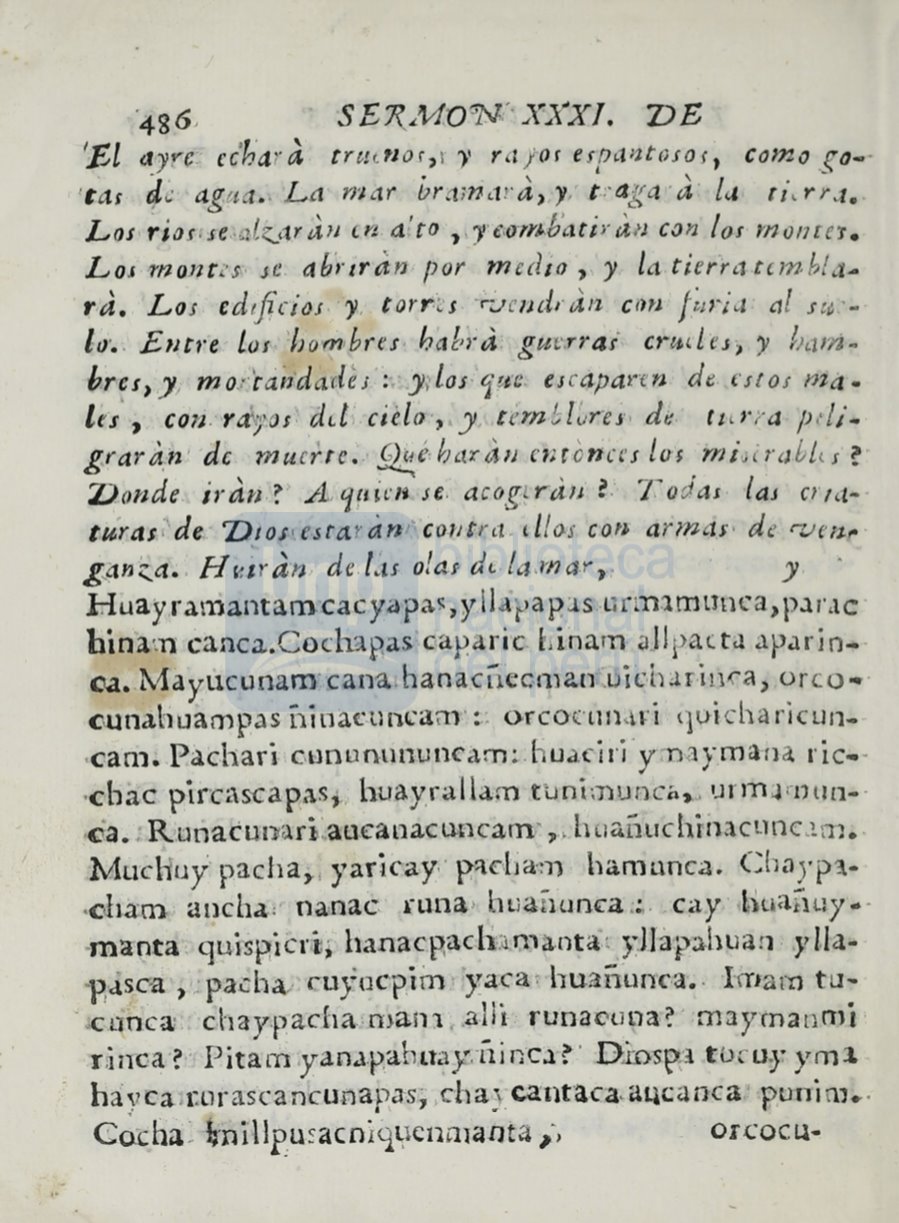 486 SERMON XXXI. DE
El ayre echarà truenos, y rayos espantosos, como go-
tas de agua. La mar bramarà, y tragarà à la tierra.
Los rios se alzaràn en alto, y combatiràn con los montes.
Los montes se abriràn por medio, y la tierra tembla-
rà. Los edificios y torres vendràn con furia al sue-
lo. Entre los hombres habrà guerras crueles, y ham-
bres, y mortandades: y los que escaparen de estos ma-
les, con rayos del cielo, y temblores de tierra peli-
graràn de muerte. Què haràn entònces los miserables?
Donde iràn? A quien se acogeràn? Todas las cria-
turas de Dios estaràn contra ellos con armas de ven-
ganza. Huiràn de las olas de la mar, y
Huayramantam cacyapas, yllapapas urmamunca, parac
hinam canca. Cochapas caparic hinam allpacta aparin-
ca. Mayucunam cana hanacñecman uicharinca, orco-
cunahuampas ñinacuncam: orcocunari quicharicun-
cam. Pachari cununununcam: huaciri ymaymana ric-
chac pircascapas, huayrallam tunimunca, urmamun-
ca. Runacunari aucanacuncam, huañuchinacuncam.
Muchuy pacha, yaricay pacham hamunca. Chaypa-
cham ancha nanac runa huañunca: cay huañuy-
manta quispicri, hanacpachamanta yllapahuan ylla-
pasca, pacha cuyucpim yaca huañunca. Imam tu-
cunca chaypacha mana alli runacuna? maymanmi
rinca? Pitam yanapahuay ñinca? Diospa tucuy yma
hayca rurascancunapas, chaycantaca aucanca punim.
Cocha millpuracniquenmanta, orcocu-
biblioteca
nacional
del perú